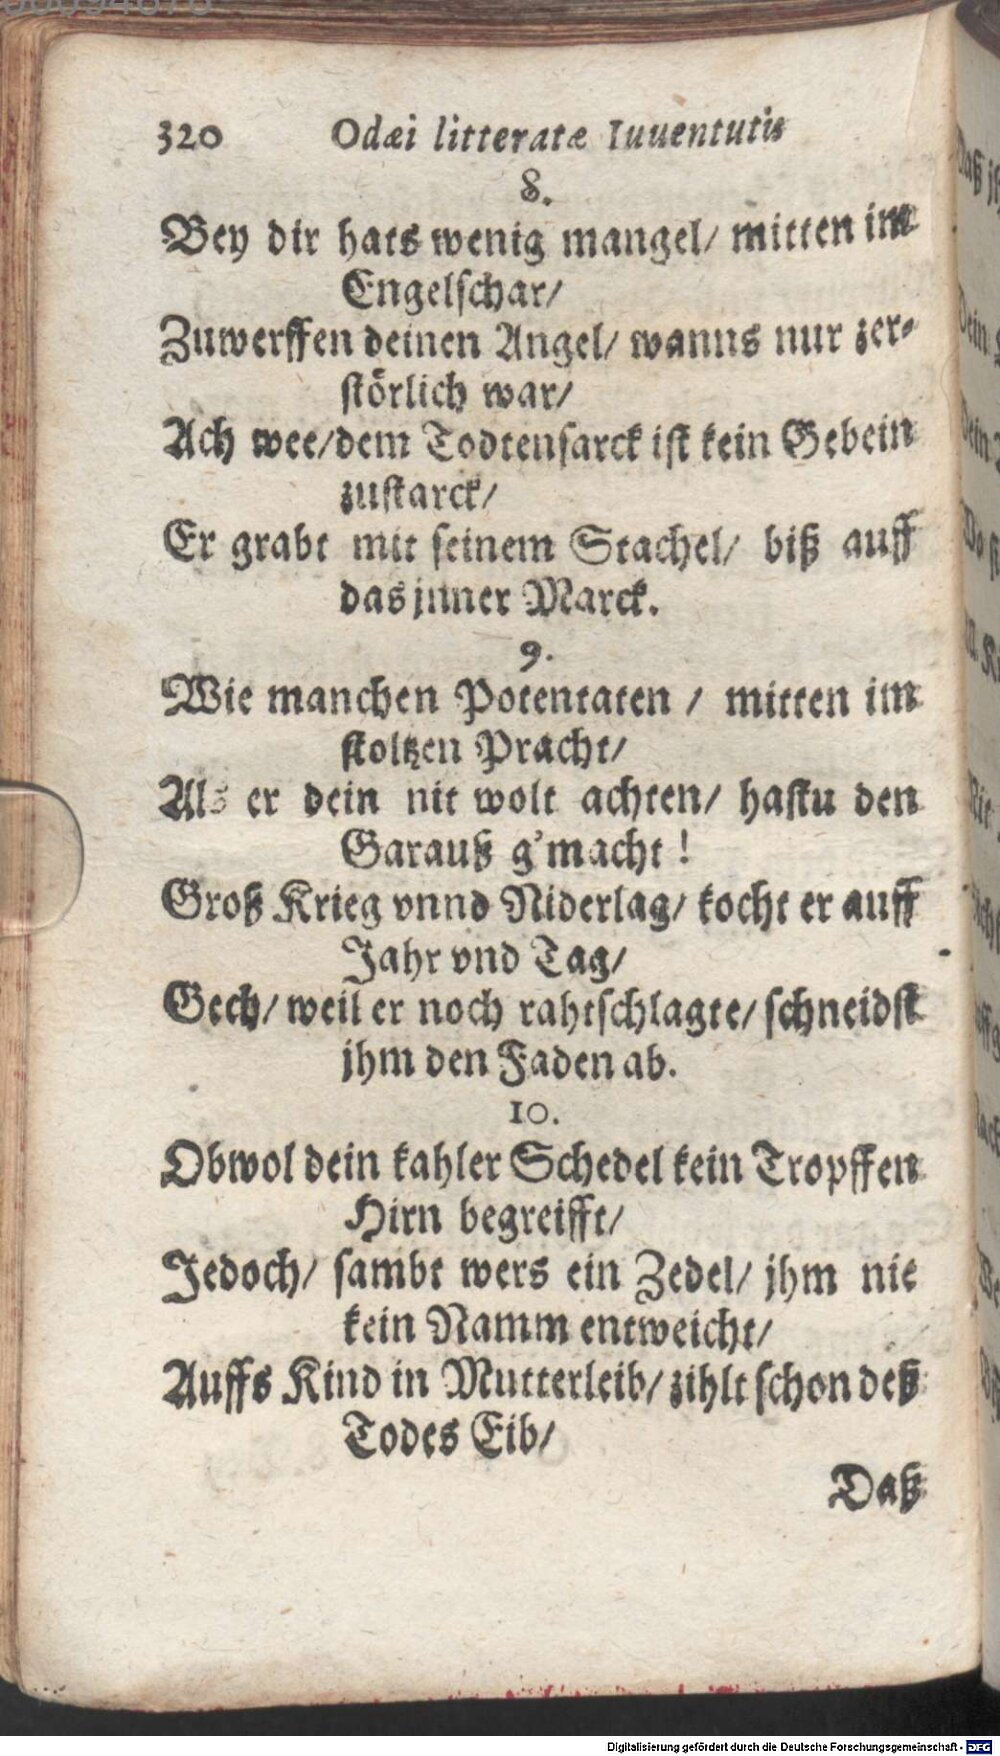 320 Odæi litteratæ Iuuentutis
8.
Bey dir hats wenig mangel/ mitten im
Engelschar/
Zuwerffen deinen Angel/ wanns nur zer-
störlich war/
Ach wee/dem Todtensarck ist kein Gebein
zustarck/
Er grabt mit seinem Stachel/ biß auff
das jnner Marck.
9.
Wie manchen Potentaten / mitten im
stoltzen Pracht/
Als er dein nit wolt achten/ hastu den
Garauß g'macht !
Groß Krieg vnnd Niderlag/ kocht er auff
Jahr vnd Tag/
Gech/ weil er noch rahtschlagte/ schneidst
jhm den Faden ab.
10.
Obwol dein kahler Schedel kein Tropffen
Hirn begreifft/
Jedoch/ sambt wers ein Zedel/ jhm nie
kein Namm entweicht/
Auffs Kind in Mutterleib/ zihlt schon deß
Todes Eib/
Daß
Digitalisierung gefördert durch die Deutsche Forschungsgemeinschaft - DFG